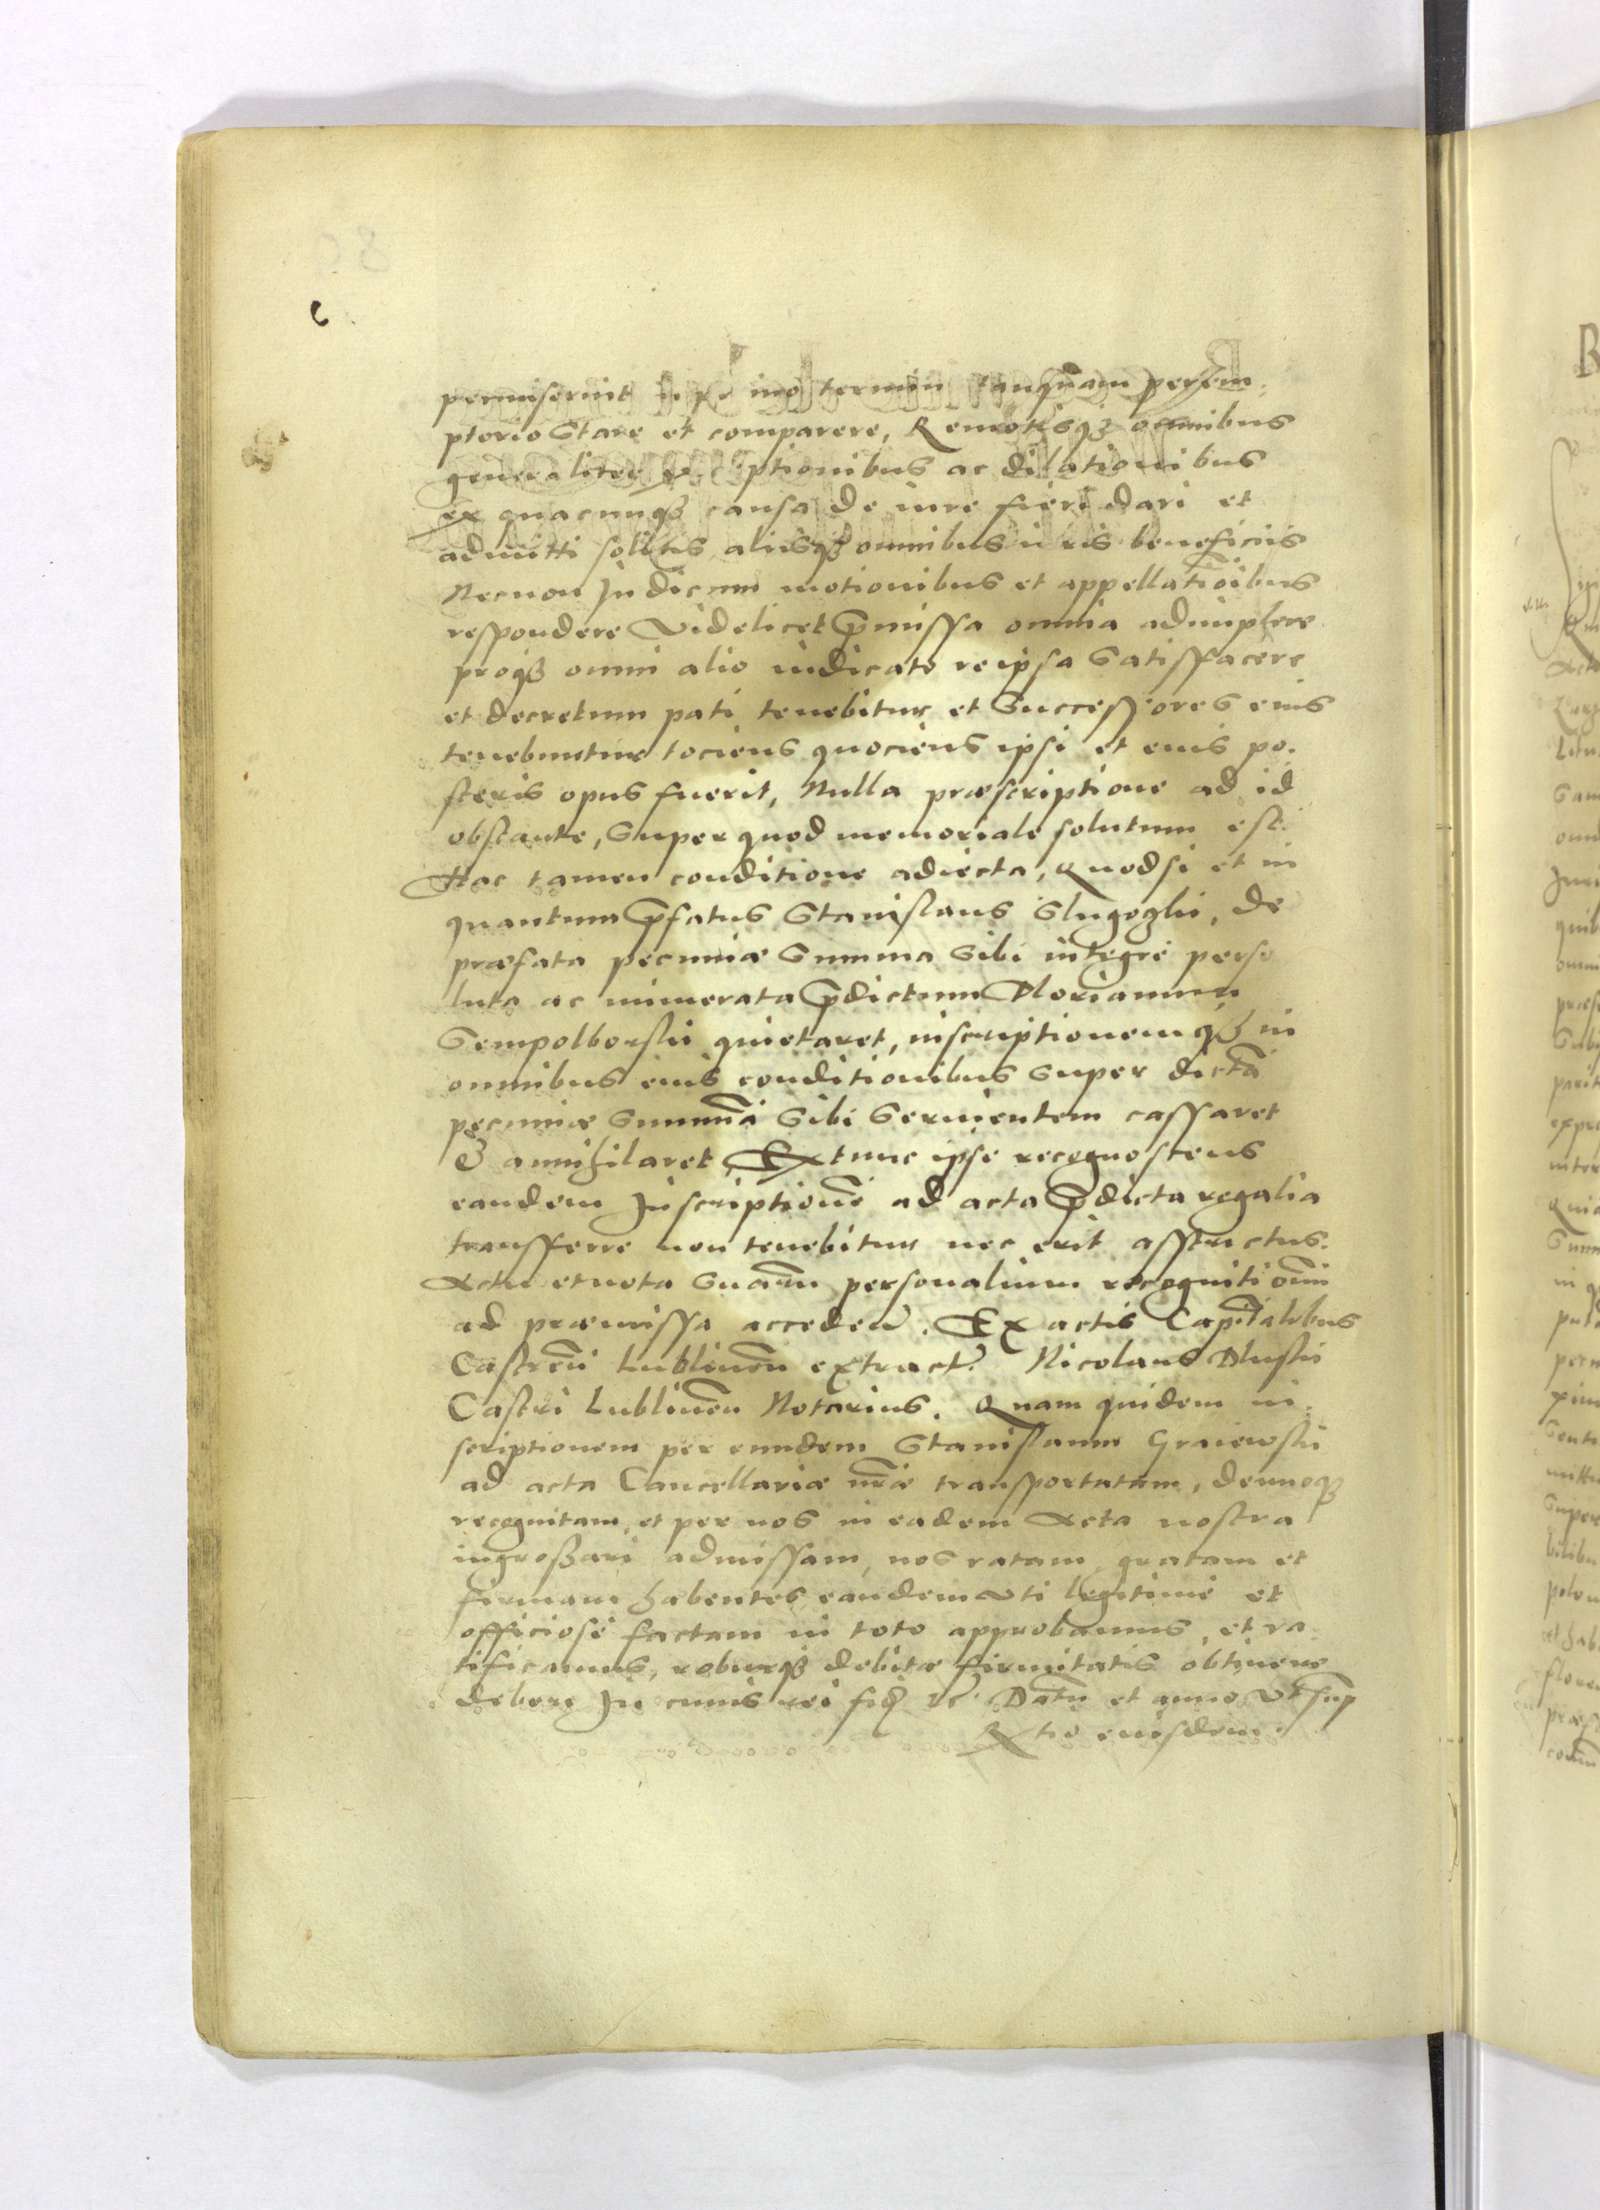 permiserint in primo termino tanquam perem-
ptorio stare et comparere, Remotisq3 omnibus
generaliter exceptionibus ac dilationibus
ex quacunq3 causa de iure fieri dari et
admitti solitis aliisq3 omnibus iuris beneficiis
Necnon Judicum motionibus et appellatioibus
respondere Videlicet pmissa omnia adimplere
proq3 omni alio iudicato reipsa satisfacere
et decretum pati tenebitur et successores eius
tenebuntur tociens quociens ipsi et eius po-
steris opus fuerit, Nulla præscriptione ad id
obstante, super quod memoriale solutum est.
Hac tamen conditione adiecta, Quodsi et in
quantum pfatus Stanislaus de
præfata pecuniæ summa sibi integre perso
luta ac numerata pdictum Florianum
Sempolborski quietaret, inscriptionemq3 in
omnibus eius conditionibus super dicta
pecuniæ summa sibi seruientem cassaret
& annihilaret, Extunc ipse recognoscens
eandem Inscriptione ad acta pdicta regalia
transferre non tenebitur nec erit asstrictus.
Actu et nota suarum personalium recognitionum
ad præmissa acceden. Ex actis Capitalibus
Castren Lublinen extract. Nicolaus Dluski
Castri Lublinen Notarius. Quam quidem in-
scriptionem per eundem Stanislaum Graiewski
ad acta Cancellariæ nræ transportatam, denuoq3
recognitam, et per nos in eadem Acta nostra
ingrossari admissam, nos ratam gratam et
firmam habentes eandem Vti legitime et
officiose factam in toto approbamus, et ra-
tificamus, roburq3 debitæ firmitatis obtinere
debere In cuius rei fid etc. Datu et anno Vt sup
Rtio eiusdem.